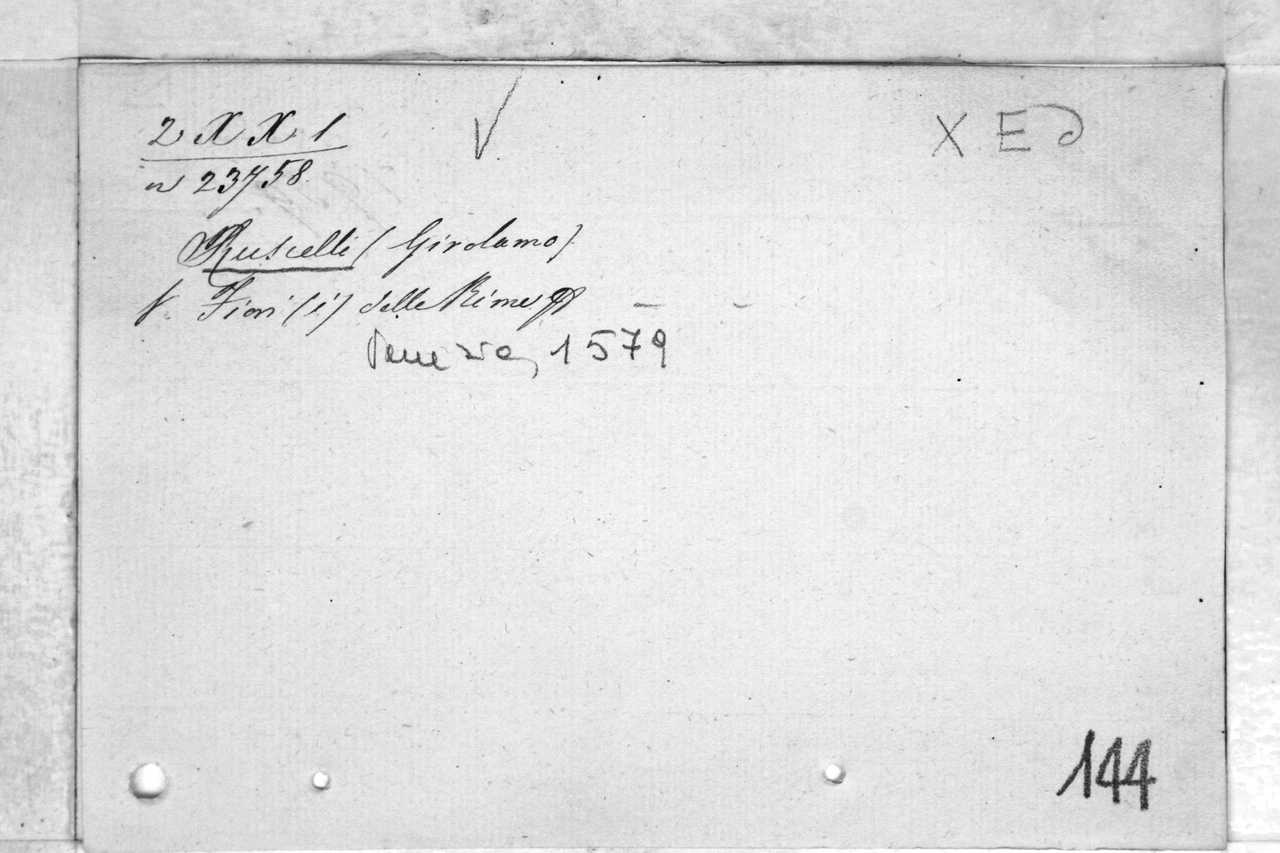 2 X X 1
n 23758
V
X E
Ruscelli (Girolamo)
V. Fiori (i) delle Rime
Venezia, 1579
144